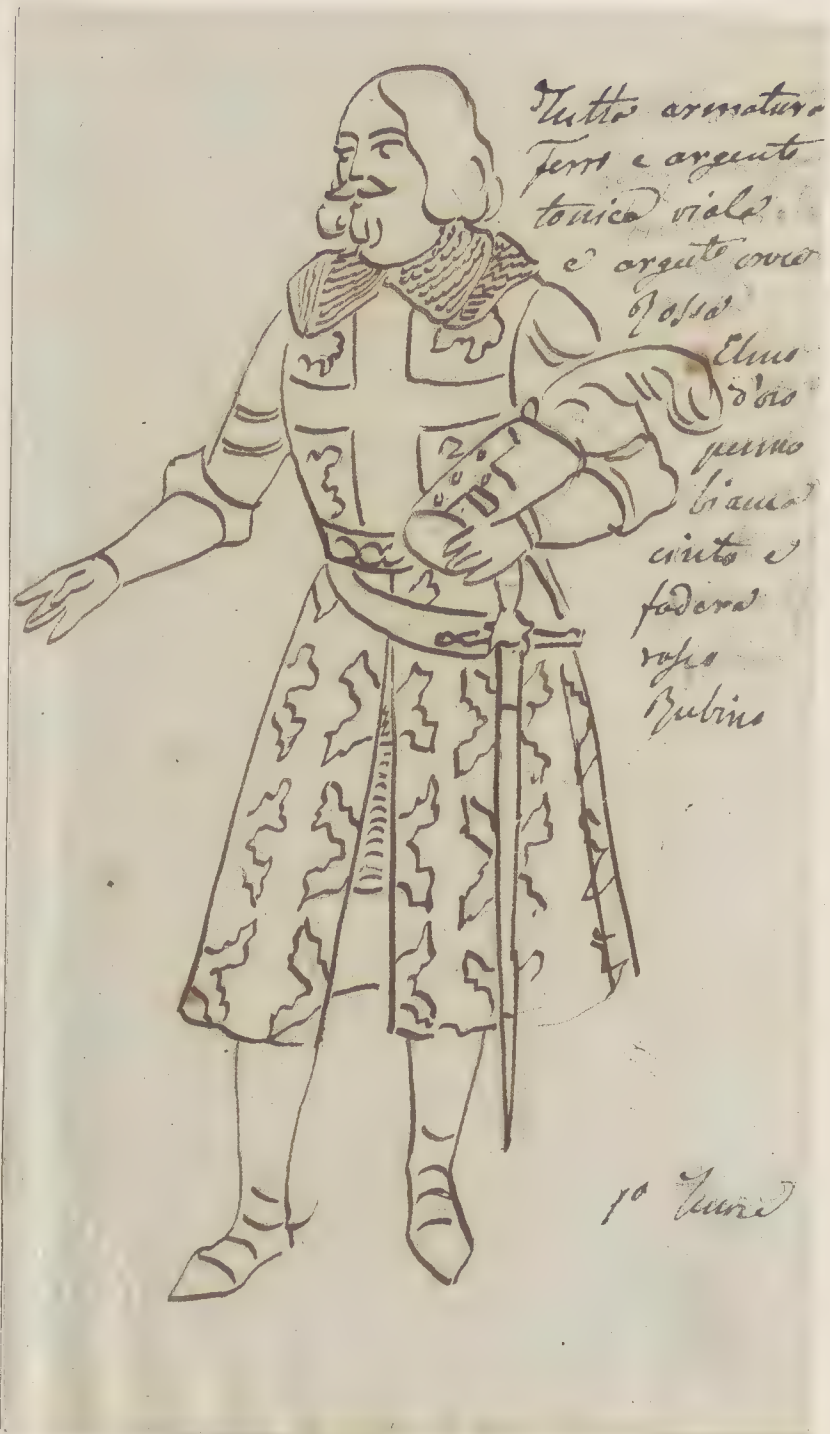 Tutta armatura
ferro e argento
tonica viola
e argento croce
Rossa
Elmo
d'oro
penno
bianco
cinto e
fodera
rosso
Rubino
1º